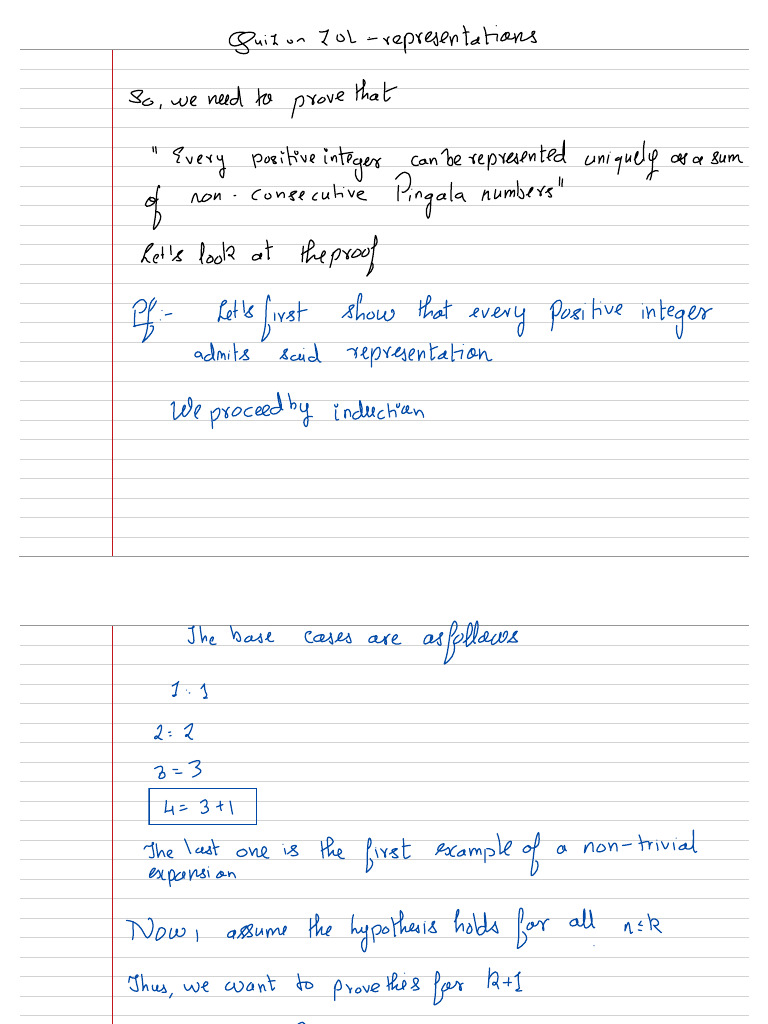 Quiz on ZOL - representations
So, we need to prove that
"Every positive integer can be represented uniquely as a sum
of non-consecutive Pingala numbers"
Let's look at the proof
Pf:- Let's first show that every positive integer
admits said representation
We proceed by induction
The base cases are as follows
1: 1
2: 2
3 = 3
4 = 3+1
The last one is the first example of a non-trivial
expansion
Now, assume the hypothesis holds for all n≤k
Thus, we want to prove this for k+1